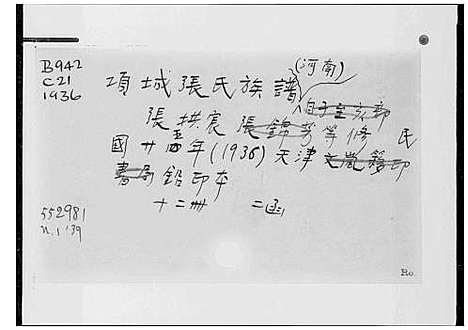 B942
C21
1936
(河南)
項城張氏族譜
張拱宸 張錦芳等修 民
國廿五年(1936)天津文嵐簃印
書局鉛印本
十二冊 二函
552981
N.1'39
Ro.